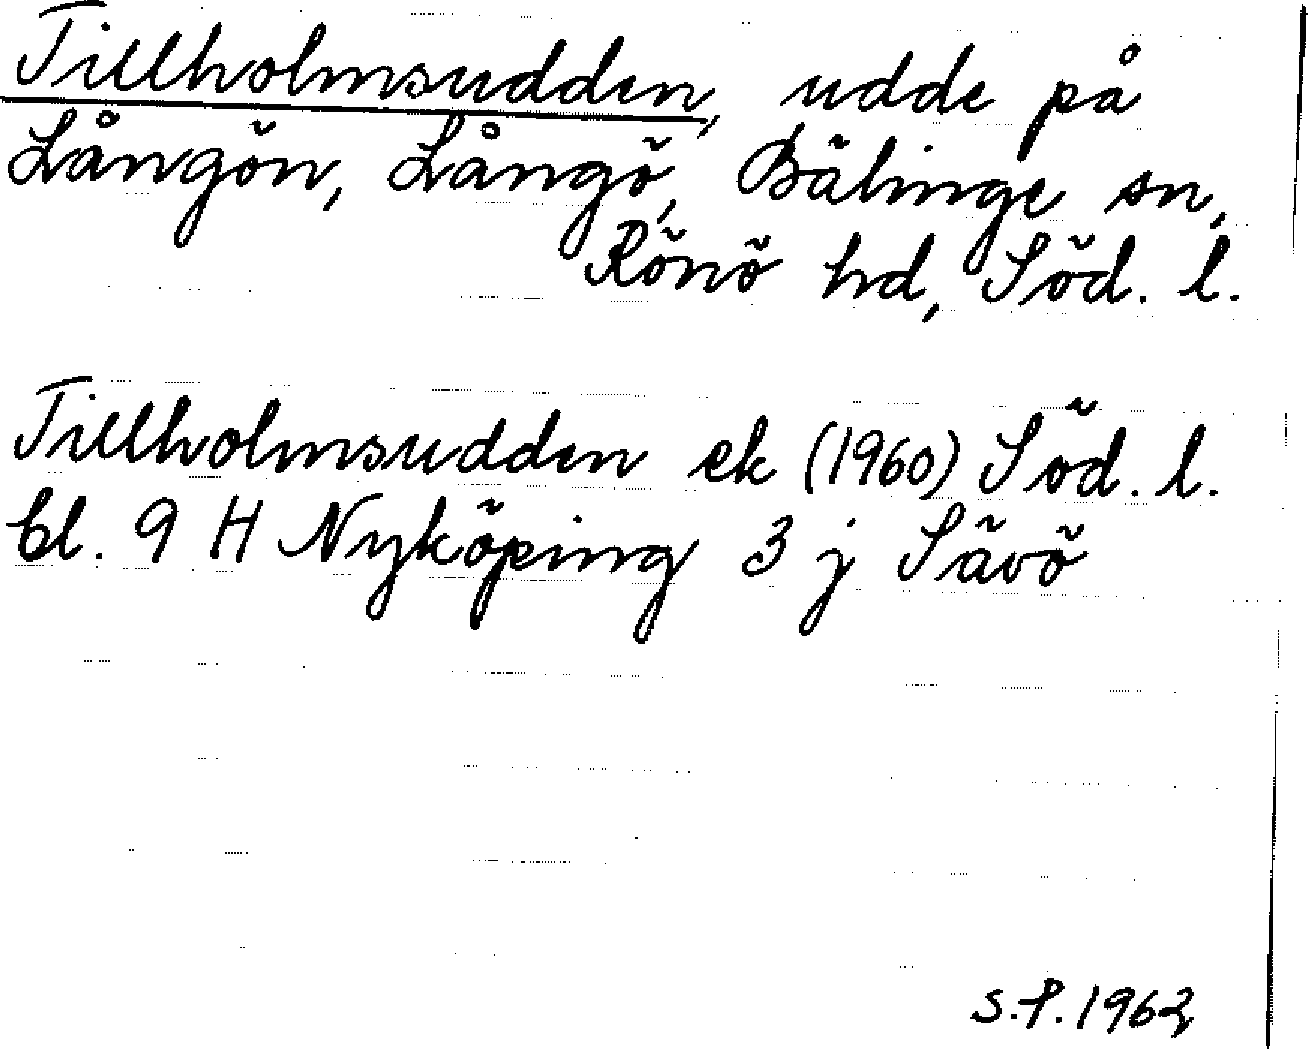 Tillholmsudden, udde på
Långön, Långö, Bälinge sn,
Rönö hd, Söd. l.
Tillholmsudden ek (1960) Söd. l.
bl. 9 H Nyköping 3 j Sävö
S.P. 1963